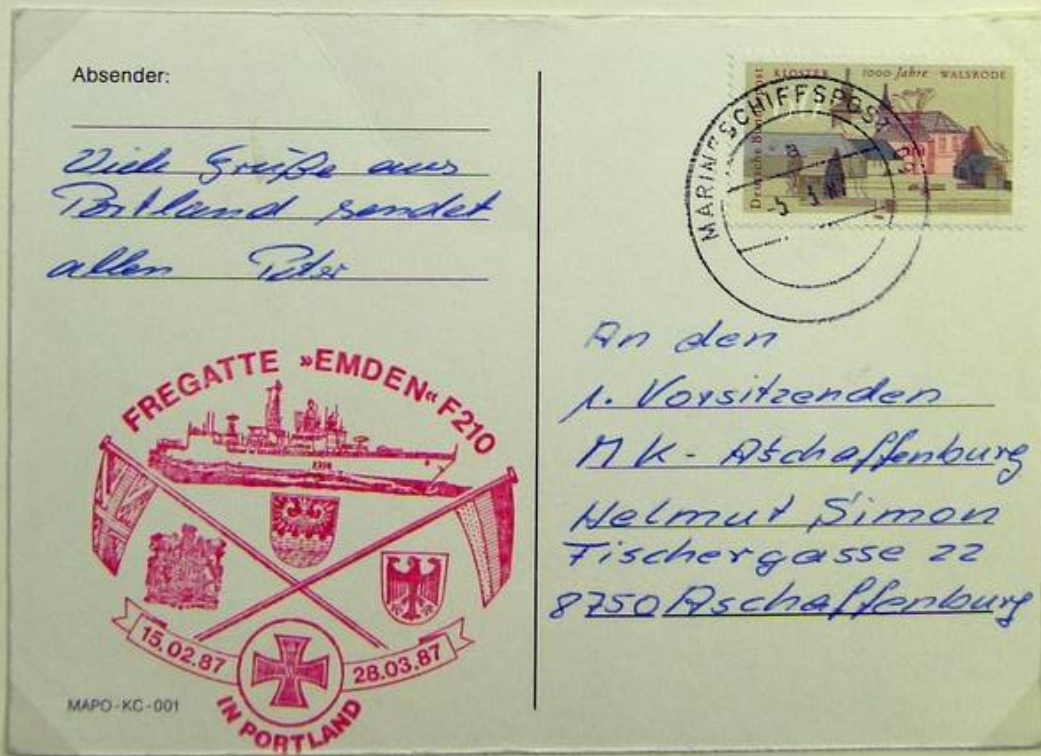 Absender:
Viele Grüße aus
Portland sendet
allen Peter
FREGATTE »EMDEN« F210
15.02.87
28.03.87
IN PORTLAND
MAPO-KC-001
KLOSTER 1000 Jahre WALSRODE
Deutsche Bundespost
MARINESCHIFFSPOST
An den
1. Vorsitzenden
MK- Aschaffenburg
Helmut Simon
Fischergasse 22
8750 Aschaffenburg